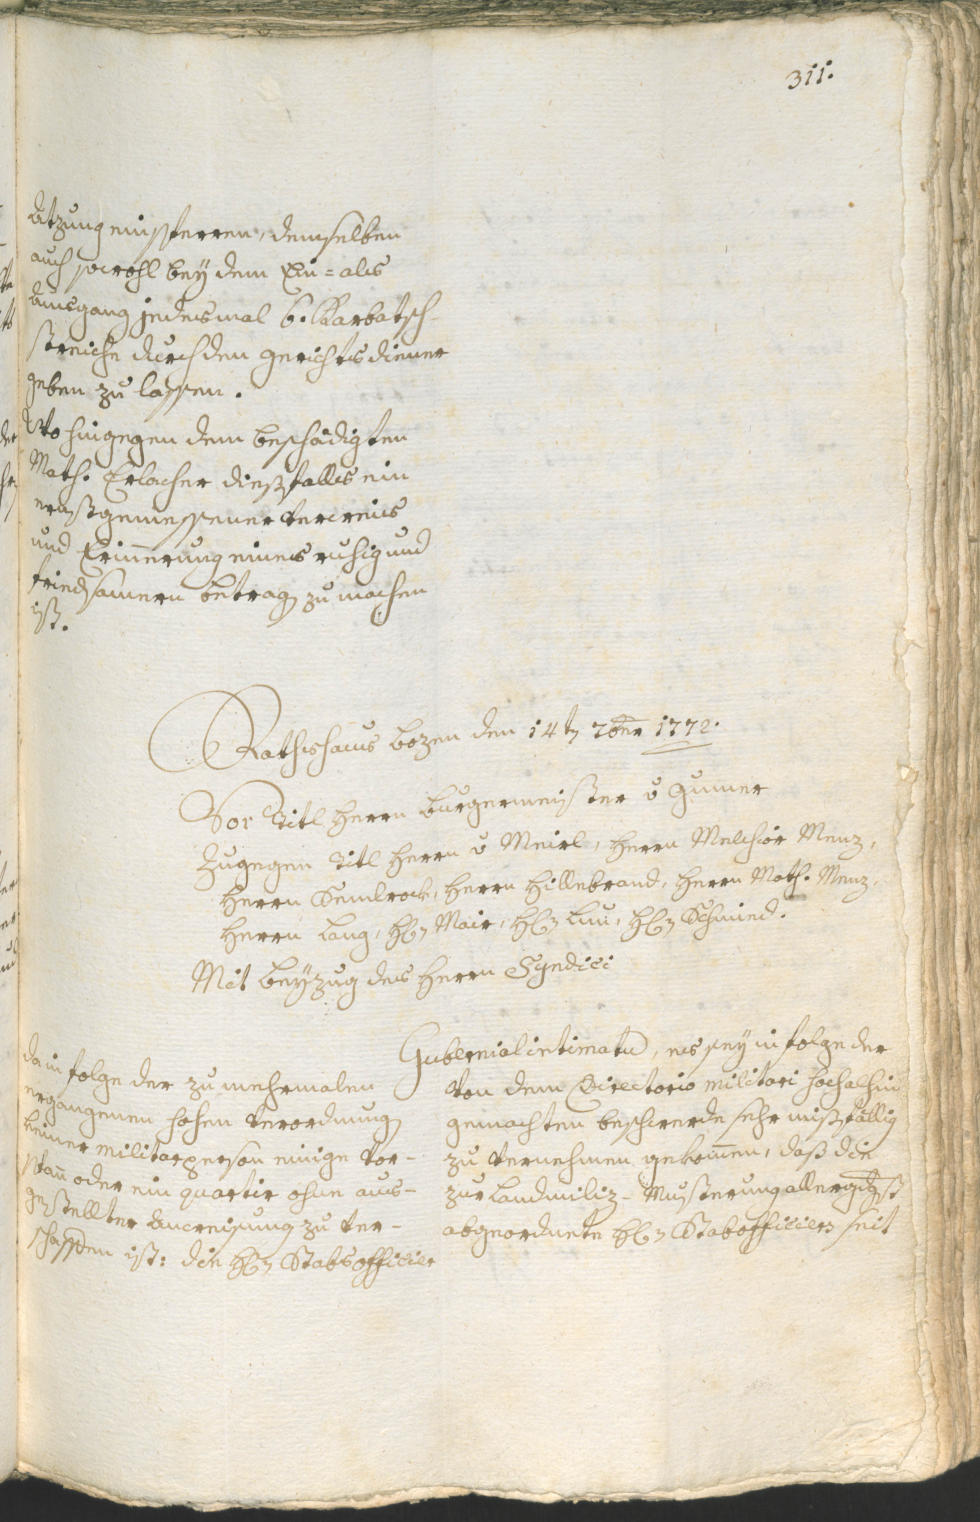 311.
Atzung einsperren, demselben
auch sowohl bey dem Ein= als
Ausgang jedesmal 6. Karbatsch-
streiche durch den gerichtsdiener
geben zu lassen.
Wo hingegen dem beschädigten
Math. Erlacher diesfalls ein
ernstgemessener verweis
und Erinnerung eines ruhig und
friedsamern betrag zu machen
ist.
Rathshaus Bozen den 14t 7ber 1772.
Vor Titl Herrn Burgermeister v Gumer
Zugegen Titl Herrn v Meirl, Herrn Melchior Menz,
Herrn Semlrock, Herrn Hillebrand, Herrn Math. Menz,
Herrn Lang, H Mair, H H Schmied.
Mit beyzug des Herrn Syndici
Gubernialintimatu, es sey in folge der
von dem Directorio militari hochalhin
gemachten beschwerde sehr mißfällig
zu vernehmen gekommen, daß die
zur Landmiliz-Musterung allergdst
abgeordnete H Staboffiliciers seit
da in folge der zu mehrmalen
ergangenen hohen verordnung
keiner militarperson einige vor-
spann oder ein quartir ohne aus-
gestellter Anweisung zu ver-
schaffen ist: die H Stabsofficier